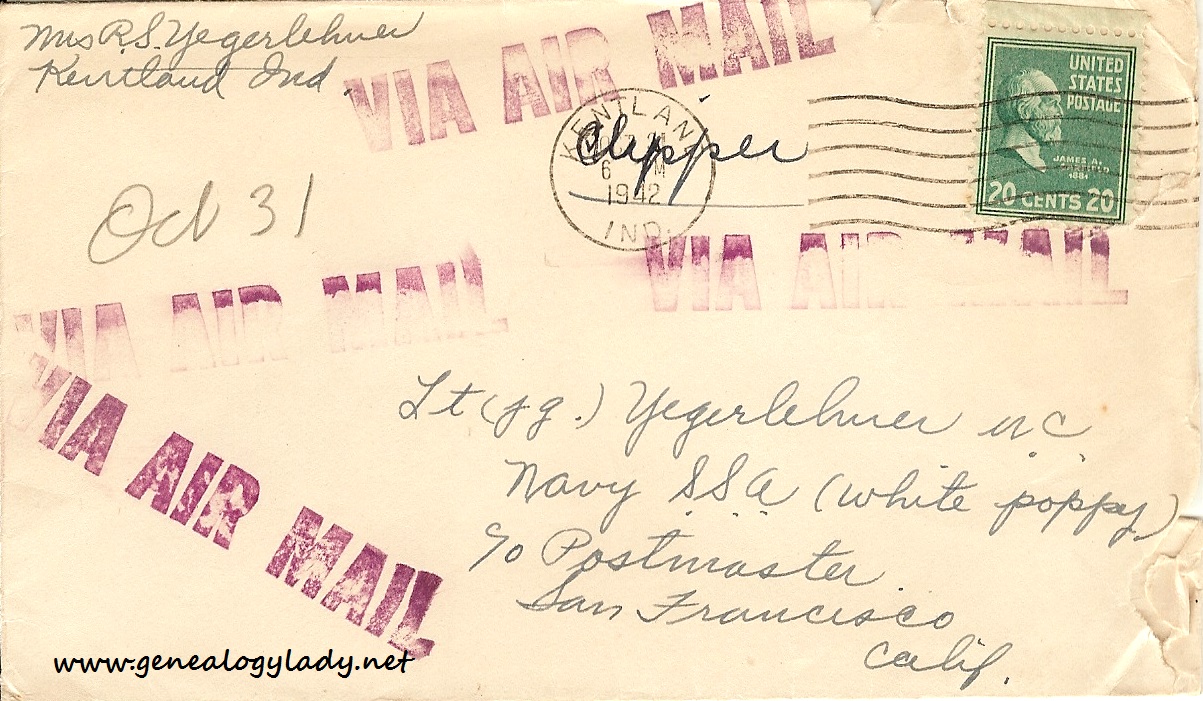 Mrs R.S. Yegerlehner
Kentland Ind.
VIA AIR MAIL
UNITED
STATES
POSTAGE
JAMES A.
GARFIELD
1881
20 CENTS 20
KENTLAND
6 M
1942
IND.
Clipper
Oct 31
VIA AIR MAIL
VIA AIR MAIL
VIA AIR MAIL
Lt (jg.) Yegerlehner
Navy SSA (white poppy)
c/o Postmaster
San Francisco
Calif.
www.genealogylady.net